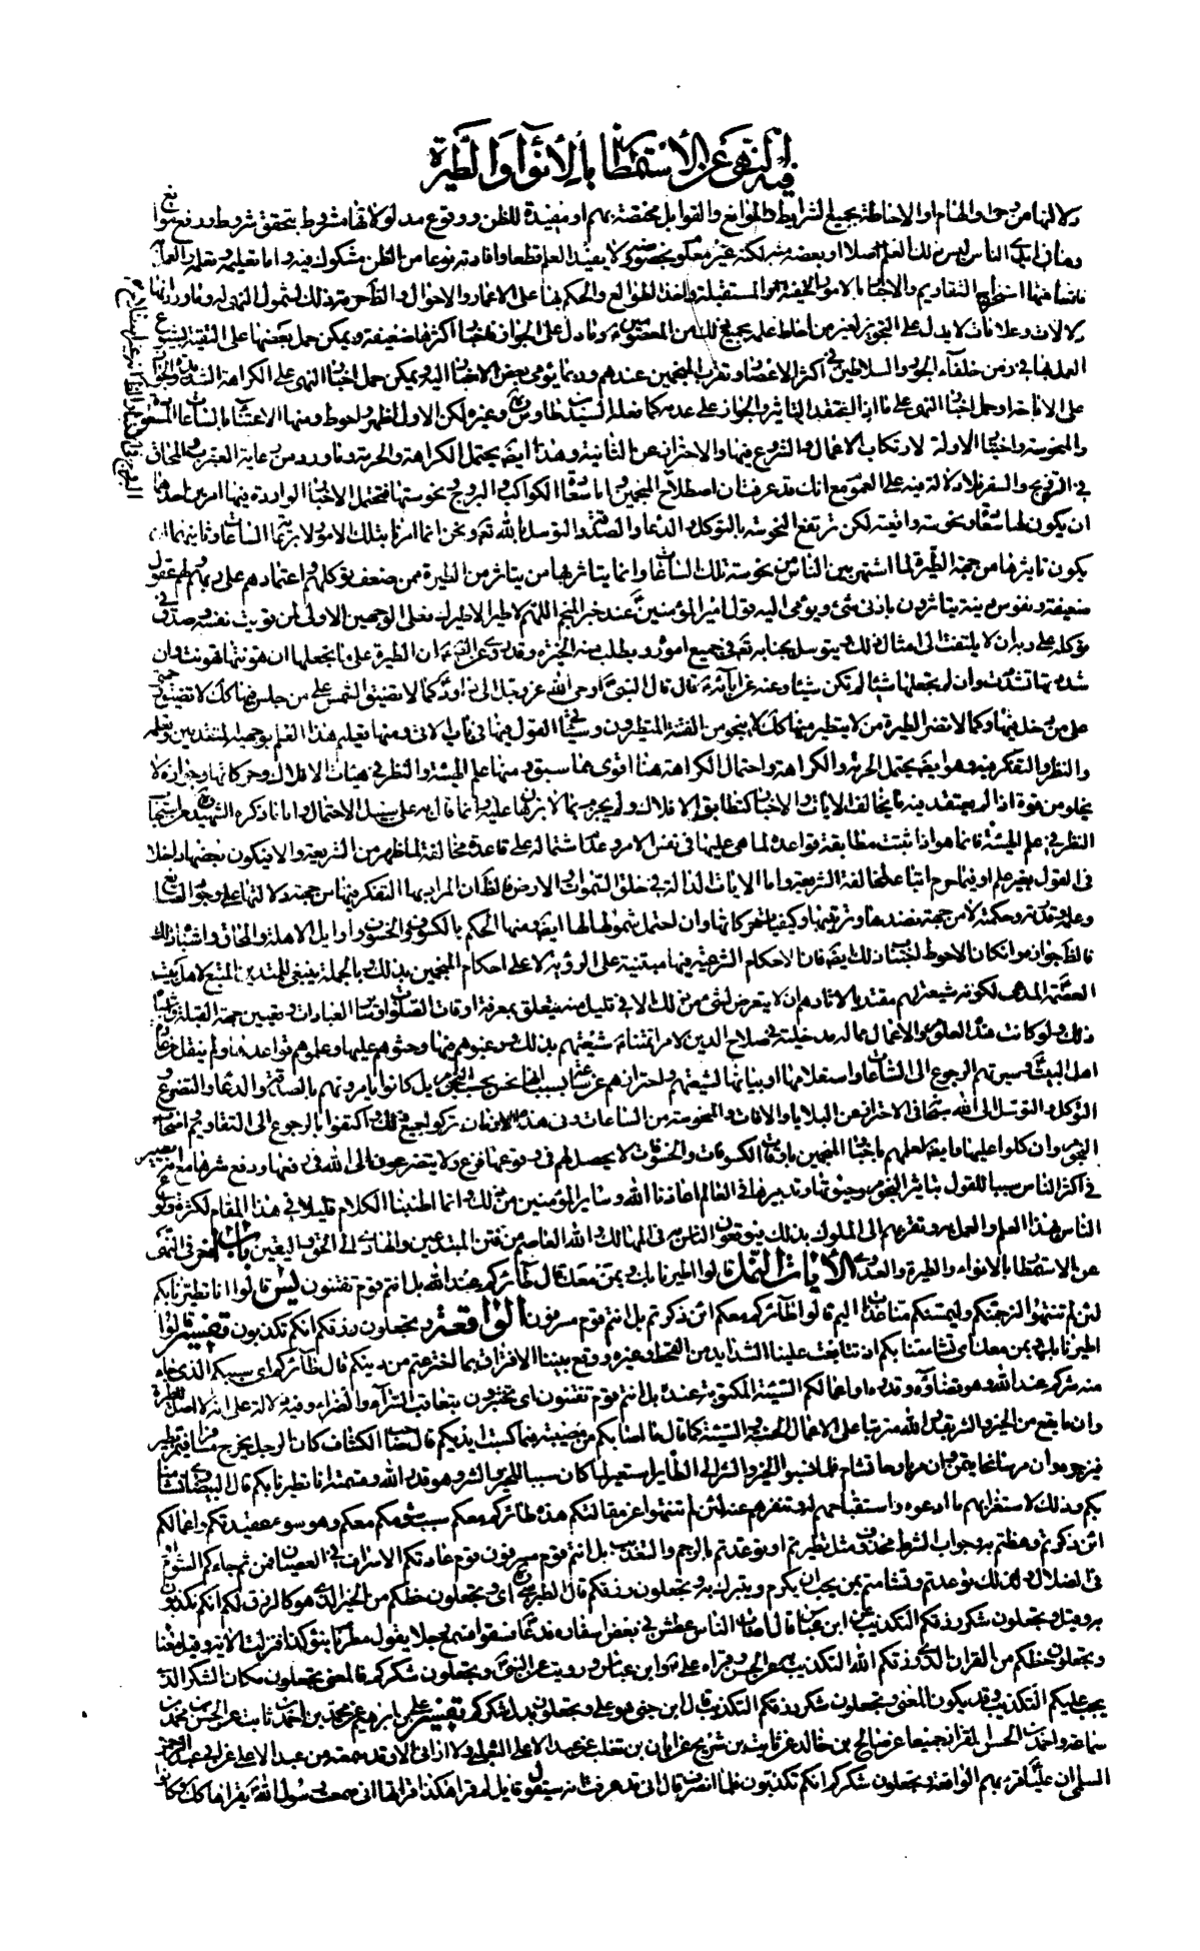 فيه النهي عن الاستمطار بالأنواء والطيرة
دلالتها من وحي والهام او الاحاطة بجميع الشرايط والموانع والقوابل مختصة بهم او مفيدة للظن ووقوع مدلولاتها مشروط بتحقق شروط ورفع موانع
وما في ايدي الناس ليس ذلك العلم اصلا او بعضه منه لكنه غير معلوم بخصوصه لا يفيد العلم قطعا وافادته نوعا من الظن مشكوك فيه واما تعليمه وتعلمه والعمل
به فاما منها استخراج التقاويم والاخبار بالامور الخفية او المستقبلة واخذ الطوالع والحكم بها على الاعمار والاحوال والظاهر حرمة ذلك لشمول النهي له وما ورد انها
دلالات وعلامات لا يدل على التجويز لغير من احاط علمه بجميع ذلك من المعصومين وما دل على الجواز فاخبار اكثرها ضعيفة ويمكن حمل بعضها على التقية لشيوع
العمل بها في زمن خلفاء الجور والسلاطين في اكثر الاعصار وتقرب المنجمين عندهم وربما يومي بعض الاخبار اليه ويمكن حمل اخبار النهي على الكراهة الشديدة والجواز
على الاباحة او حمل اخبار النهي على ما اذا اعتقد التاثير والجواز على عدمه كما فعله السيد بن طاوس ره وغيره لكن الاول اظهر واحوط ومنها الاعتناء بالساعات المسعودة
والمنحوسة واختيار الاولة لارتكاب الاعمال والشروع فيها والاحتراز عن الثانية وهذا ايضا يحتمل الكراهة والحرمة وما ورد من رعاية العقرب والمحاق
في التزويج والسفر فلا دلالة فيه على العموم مع انك قد عرفت ان اصطلاح المنجمين واما سعادة الكواكب والبروج ونحوستها فتحتمل الاخبار الواردة فيها امرين احدهما
ان يكون لها سعادة ونحوسة واقعية لكن ترتفع النحوسة بالتوكل والدعاء والصدقة والتوسل بالله تعالى ونحن انما امرنا بتلك الامور لا برعاية الساعات وثانيهما ان
يكون تاثيرها من جهة الطيرة لما اشتهر بين الناس من نحوسة تلك الساعات وانما يتاثر بها من يتاثر من الطيرة ممن ضعف توكلهم واعتمادهم على ربهم ولهم عقول
ضعيفة ونفوس دنية يتاثرون بادنى شيء ويومي اليه قول امير المؤمنين ع عند خبر المنجم اللهم لا طير الا طيرك فعلى الوجهين الاولى لمن قويت نفسه وصدق في
توكله على ربه ان لا يلتفت الى امثال ذلك ويتوسل بجنابه تعالى في جميع اموره ويطلب منه الخيرة وقد روي عن الص ع ان الطيرة على ما تجعلها ان هونتها تهونت وان
شددتها تشددت وان لم تجعلها شيئا لم تكن شيئا وعنه عن آبائه ع قال قال النبي ص اوحى الله عز وجل الى داود ع كما لا تضيق الشمس على من جلس فيها كذلك لا تضيق رحمتي
على من دخل فيها وكما لا تضر الطيرة من لا يتطير منها كذلك لا ينجو من الفتنة المتطيرون وسيأتي القول فيها في الباب الآتي ومنها تعليم هذا العلم بوجهيه المتقدمين وتعلمه
والنظر والتفكر فيه وهو ايضا يحتمل الحرمة والكراهة واحتمال الكراهة هنا اقوى مما سبق ومنها علم الهيئة والنظر في هيئات الافلاك وحركاتها وجوازه لا
يخلو من قوة اذا لم يعتقد فيه ما يخالف الآيات والاخبار كتطابق الافلاك ولم يجزم بما لا برهان عليه وانما قال به على سبيل الاحتمال واما ما ذكره الشهيد ره من استحباب
النظر في علم الهيئة فانما هو اذا ثبتت مطابقة قواعده لما هي عليها في نفس الامر وعدم اشتماله على قاعدة مخالفة لما ظهر من الشريعة والا فيكون بعضها داخلا
في القول بغير علم او فيما حرم اتباعه لمخالفة الشريعة واما الآيات الدالة في خلق السموات والارض فالظاهر ان المراد بها التفكر فيها من جهة دلالتها على وجود الصانع
وعلمه وقدرته وحكمته لا من جهة نضدها وترتيبها وكيفيات حركاتها وان احتمل شمولها لها ايضا ومنها الحكم بالكسوف والخسوف واوايل الاهلة والمحاق واشباه ذلك
فالظاهر جوازه وان كان الاحوط اجتناب ذلك ايضا فان الاحكام الشرعية فيها مبتنية على الرؤية لا على احكام المنجمين بذلك وبالجملة ينبغي للمتدين المتبع لاهل بيت
العصمة المدعي لكونه شيعة لهم مقتديا لآثارهم ان لا يتعرض لشيء من ذلك الا في قليل منه يتعلق بمعرفة اوقات الصلوات وسائر العبادات وتعيين جهة القبلة واشباه
ذلك ولو كانت هذه العلوم والاعمال مما له مدخلية في صلاح الدين لامر ائمتنا ع شيعتهم بذلك ورغبوهم فيها وحثوهم عليها وعلموهم قواعدها ولم ينقل من عادة
اهل البيت ع وسيرتهم الرجوع الى الساعات واستعلامها او بيانها لشيعتهم واحترازهم عن ساعة بسبب انها نحس بحسب النجوم بل كانوا يامرونهم بالصدقة والدعاء والتضرع و
التوكل والتوسل الى الله سبحانه في الاحتراز عن البلايا والآفات والنحوسة من الساعات وفي هذه الازمان تركوا جميع ذلك واكتفوا بالرجوع الى التقاويم واصحاب
النجوم واتكلوا عليها وايضا لعلهم باخبار المنجمين باوقات الكسوفات والخسوفات لا يحصل لهم في وقوعها فزع ولا يتضرعون الى الله في رفعها ودفع شرها مع انه يصير
في اكثر الناس سببا للقول بتاثير النجوم وحيوتها وتدبيرها في العالم اعاذنا الله وسائر المؤمنين من ذلك وانما اطنبنا الكلام قليلا في هذا المقام لكثرة ولوع
الناس بهذا العلم والعمل به وتقربهم الى الملوك بذلك فيوقعون الناس به في المهالك والله العاصم من فتن المبتدعين والهادي الى الحق واليقين باب آخر في النهي
عن الاستمطار بالانواء والطيرة والعدوى الآيات النمل قالوا اطيرنا بك وبمن معك قال طائركم عند الله بل انتم قوم تفتنون يس قالوا انا تطيرنا بكم
لئن لم تنتهوا لنرجمنكم وليمسنكم منا عذاب اليم قالوا طائركم معكم ائن ذكرتم بل انتم قوم مسرفون الواقعة وتجعلون رزقكم انكم تكذبون تفسير قالوا
اطيرنا بك وبمن معك اي تشامنا بكم اذ تتابعت علينا الشدايد من القحط وغيره ووقع بيننا الافتراق بما اخترعتم من دينكم قال طائركم اي سببكم الذي جاء
منه شركم عند الله وهو قضاؤه وقدره او اعمالكم السيئة المكتوبة عنده بل انتم قوم تفتنون اي تختبرون بتعاقب السراء والضراء وفيه دلالة على انه لا اصل للطيرة
وان ما يقع من الخير والشر بقدر الله مترتبا على الاعمال الحسنة والسيئة كما قال ما اصابكم من مصيبة فبما كسبت ايديكم قال صاحب الكشاف كان الرجل يخرج مسافرا فيمر بطير
فيزجره وان مر سانحا تيمن وان مر بارحا تشام فلما نسبوا الخير والشر الى الطاير استعير لما كان سببا للخير والشر وهو قدر الله وقسمته انا تطيرنا بكم قال البيضاوي تشامنا
بكم وذلك لاستغرابهم ما ادعوه واستقباحهم له وتنفرهم عنه لئن لم تنتهوا عن مقالتكم هذه طائركم معكم سبب شومكم معكم وهو سوء عقيدتكم واعمالكم
ائن ذكرتم وعظتم به وجواب الشرط محذوف مثل تطيرتم او توعدتم بالرجم والتعذيب بل انتم قوم مسرفون قوم عادتكم الاسراف في العصيان فمن ثم جاءكم الشوم
في الضلال ولذلك توعدتم وتشامتم بمن يجب ان يكرم ويتبرك به وتجعلون رزقكم قال الطبرسي ره اي وتجعلون حظكم من الخير الذي هو كالرزق لكم انكم تكذبون
به وقيل وتجعلون شكر رزقكم التكذيب عن ابن عباس قال اصاب الناس عطش في بعض اسفاره فدعا ص فسقوا فسمع رجلا يقول مطرنا بنوء كذا فنزلت الآية وقيل معناه
وتجعلون حظكم من القرآن الذي رزقكم الله التكذيب به عن الحسن وقراءة علي ع وابن عباس ورويت عن النبي ص وتجعلون شكركم فالمعنى تجعلون مكان الشكر الذي
يجب عليكم التكذيب وقد يكون المعنى وتجعلون شكر رزقكم التكذيب قال ابن جني هو على وتجعلون بدل شكركم تفسير علي بن ابرهيم عن محمد بن احمد بن ثابت عن الحسن بن محمد بن
سماعة واحمد بن الحسن القزاز جميعا عن صالح بن خالد عن ثابت بن شريح عن ابان بن تغلب عن عبد الاعلى الثعلبي ولا اراني الا وقد سمعته من عبد الاعلى عن ابي عبد الرحمن
السلمي ان عليا ع قرء بهم الواقعة وتجعلون شكركم انكم تكذبون فلما انصرف قال اني قد عرفت انه سيقول قائل لم قرء هكذا قراتها اني سمعت رسول الله ص يقرأها كذلك وكانوا